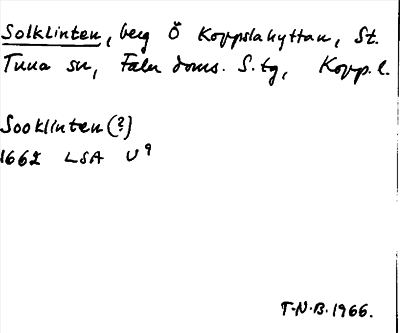 Solklinten, berg Ö Koppslahyttan, St.
Tuna sn, Falu doms. S. tg, Kopp. l.
Sooklinten (?)
1662 LSA U⁹
T.N.B. 1966.